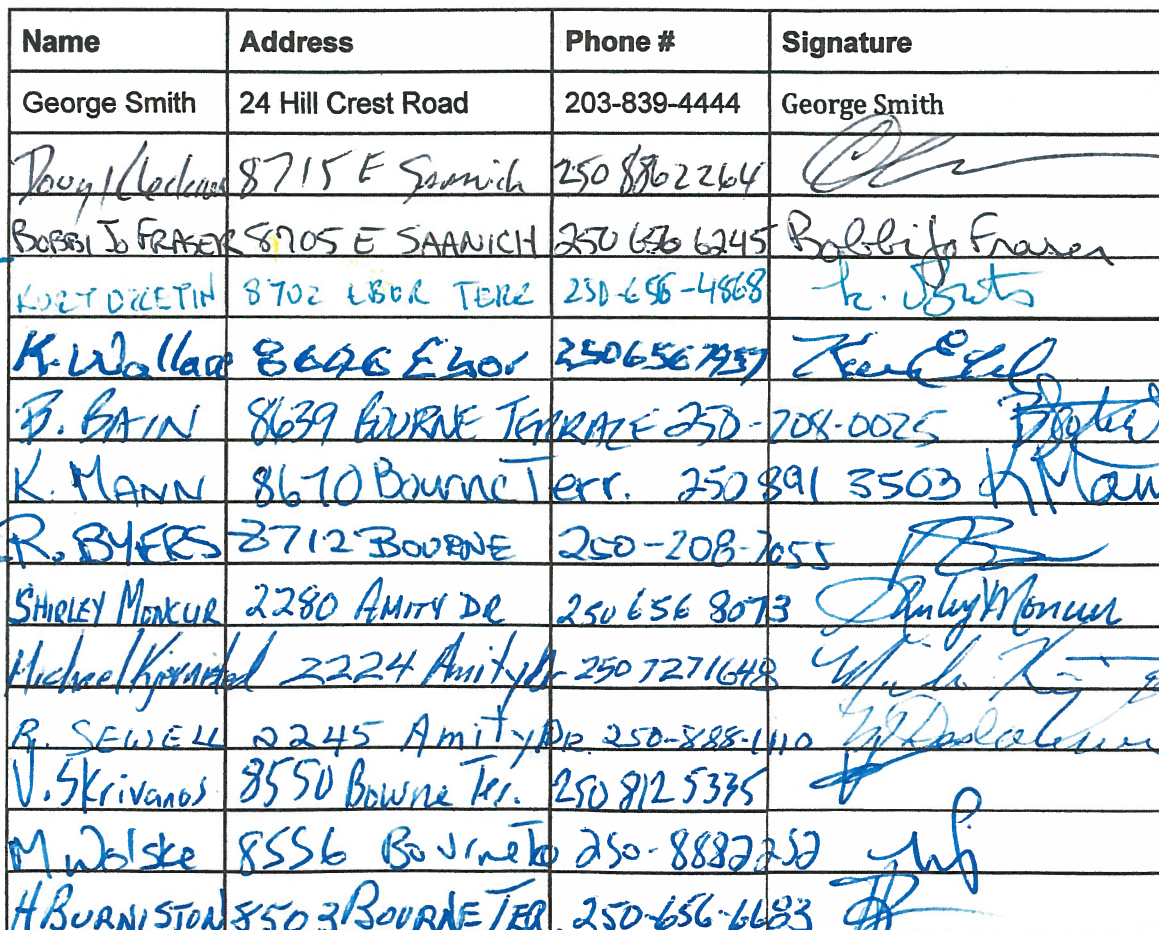 Name Address Phone # Signature
George Smith 24 Hill Crest Road 203-839-4444 George Smith
Doug 8715 E Saanich 250 8862264
BOBBI JO FRASER 8705 E SAANICH 250 656 6245 Bobbi Jo Fraser
KURT 8702 EBOR TERR 250-656-4868 K.
K. Wallace 8646 Ebor 250656
B. BAIN 8639 BOURNE TERRACE 250-208-0025
K. MANN 8670 Bourne Terr. 250 891 3503 K Mann
R. BYERS 8712 BOURNE 250-208-7055
SHIRLEY MONCUR 2280 AMITY DR 250 656 8073 Shirley Moncur
Michael 2224 Amity Dr 250 7271648
R. SEWELL 2245 Amity DR. 250-888-1110
V. Skrivanos 8550 Bourne Ter. 250 812 5335
M Wolske 8556 Bourne Te 250-8882252
H BURNISTON 8503 BOURNE TER. 250-656-6683